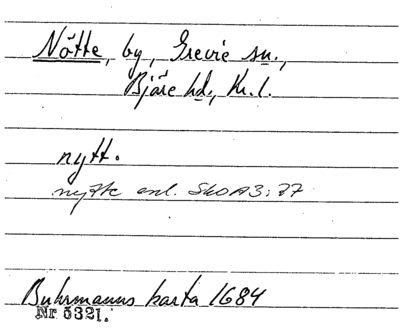 Nötte, by, Grevie sn.,
Bjäre hd., Kr. l.
nytt.
nytte enl. SkOA3:77
Buhrmanns karta 1684
Nr 5321.